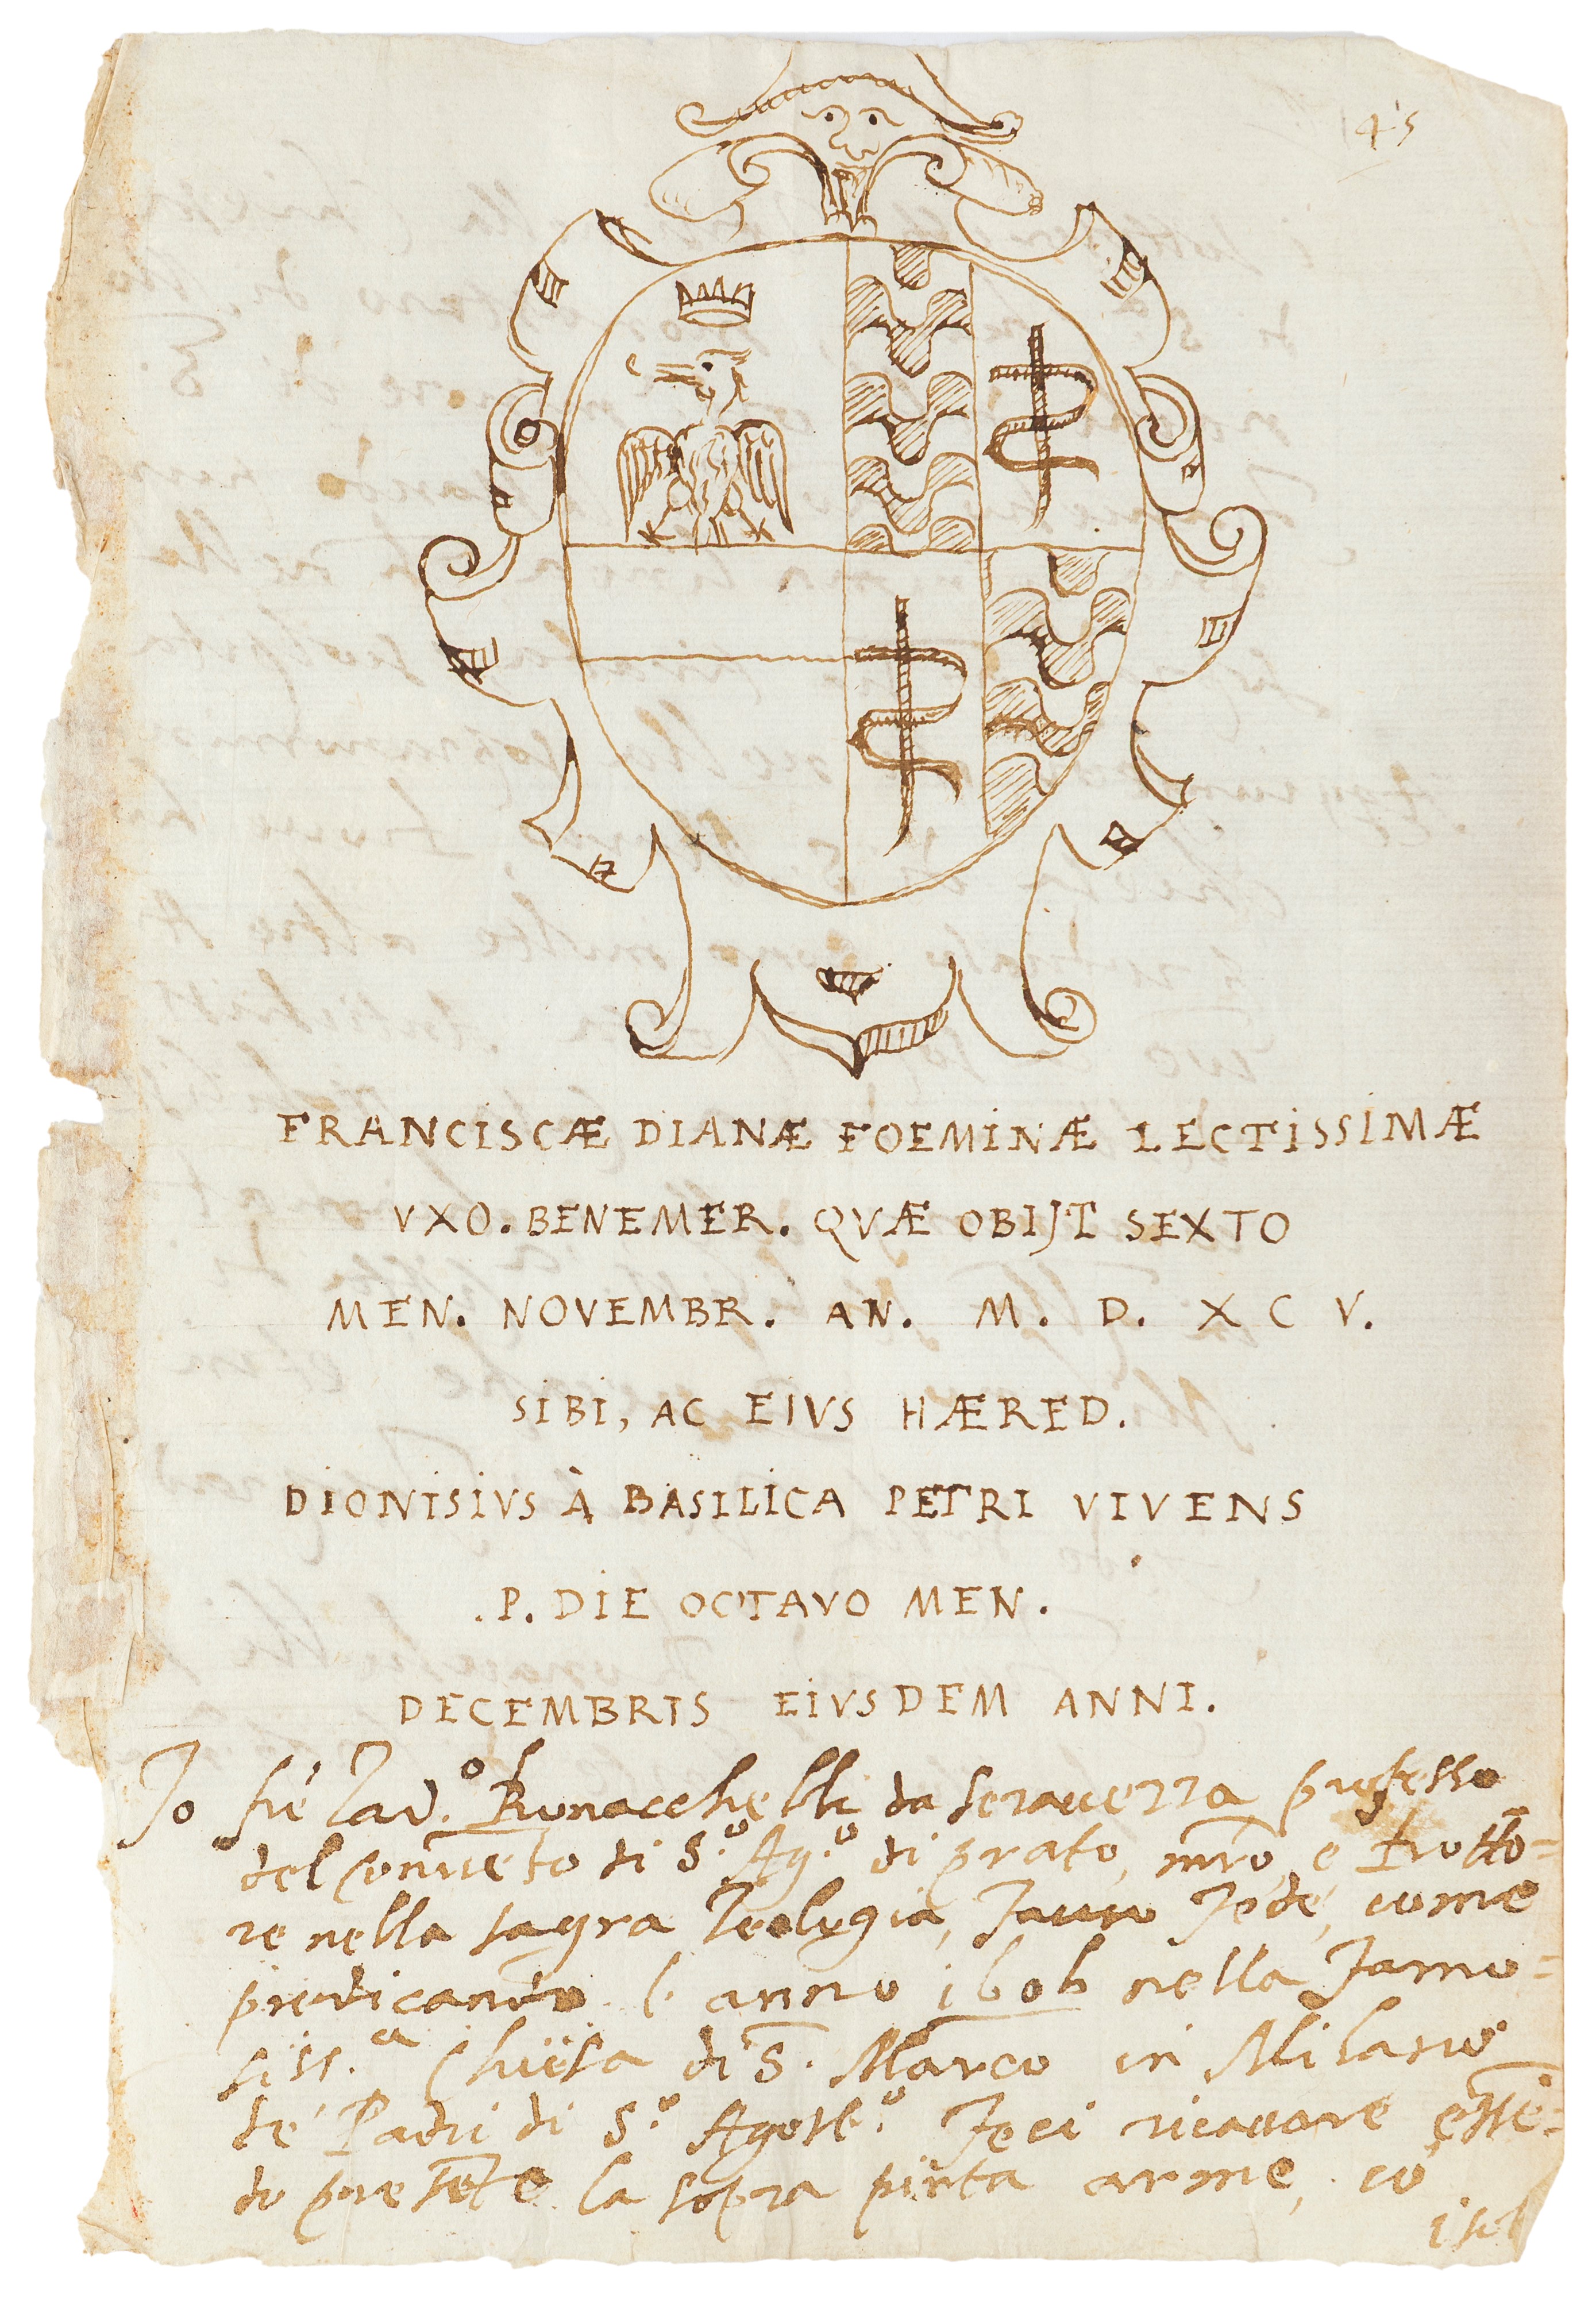 45
FRANCISCÆ DIANÆ FOEMINÆ LECTISSIMÆ
VXO. BENEMER. QVÆ OBIJT SEXTO
MEN. NOVEMBR. AN. M. D. X C V.
SIBI, AC EIVS HÆRED.
DIONISIVS À BASILICA PETRI VIVENS
.P. DIE OCTAVO MEN.
DECEMBRIS EIVSDEM ANNI.
Io frè Tad.º Bonacchelli da Serauezza professo
del Conuēto di S.º Ag.º di prato, mrō, e Dotto=
re nella sagra Teologia, faccio fede, come
predicando l' anno 1606 nella famo=
siss.ª Chiesa di S. Marco in Milano
de' Padri di S.º Agost.º feci ricauare essē=
do presēte la sopra pinta arme, cō